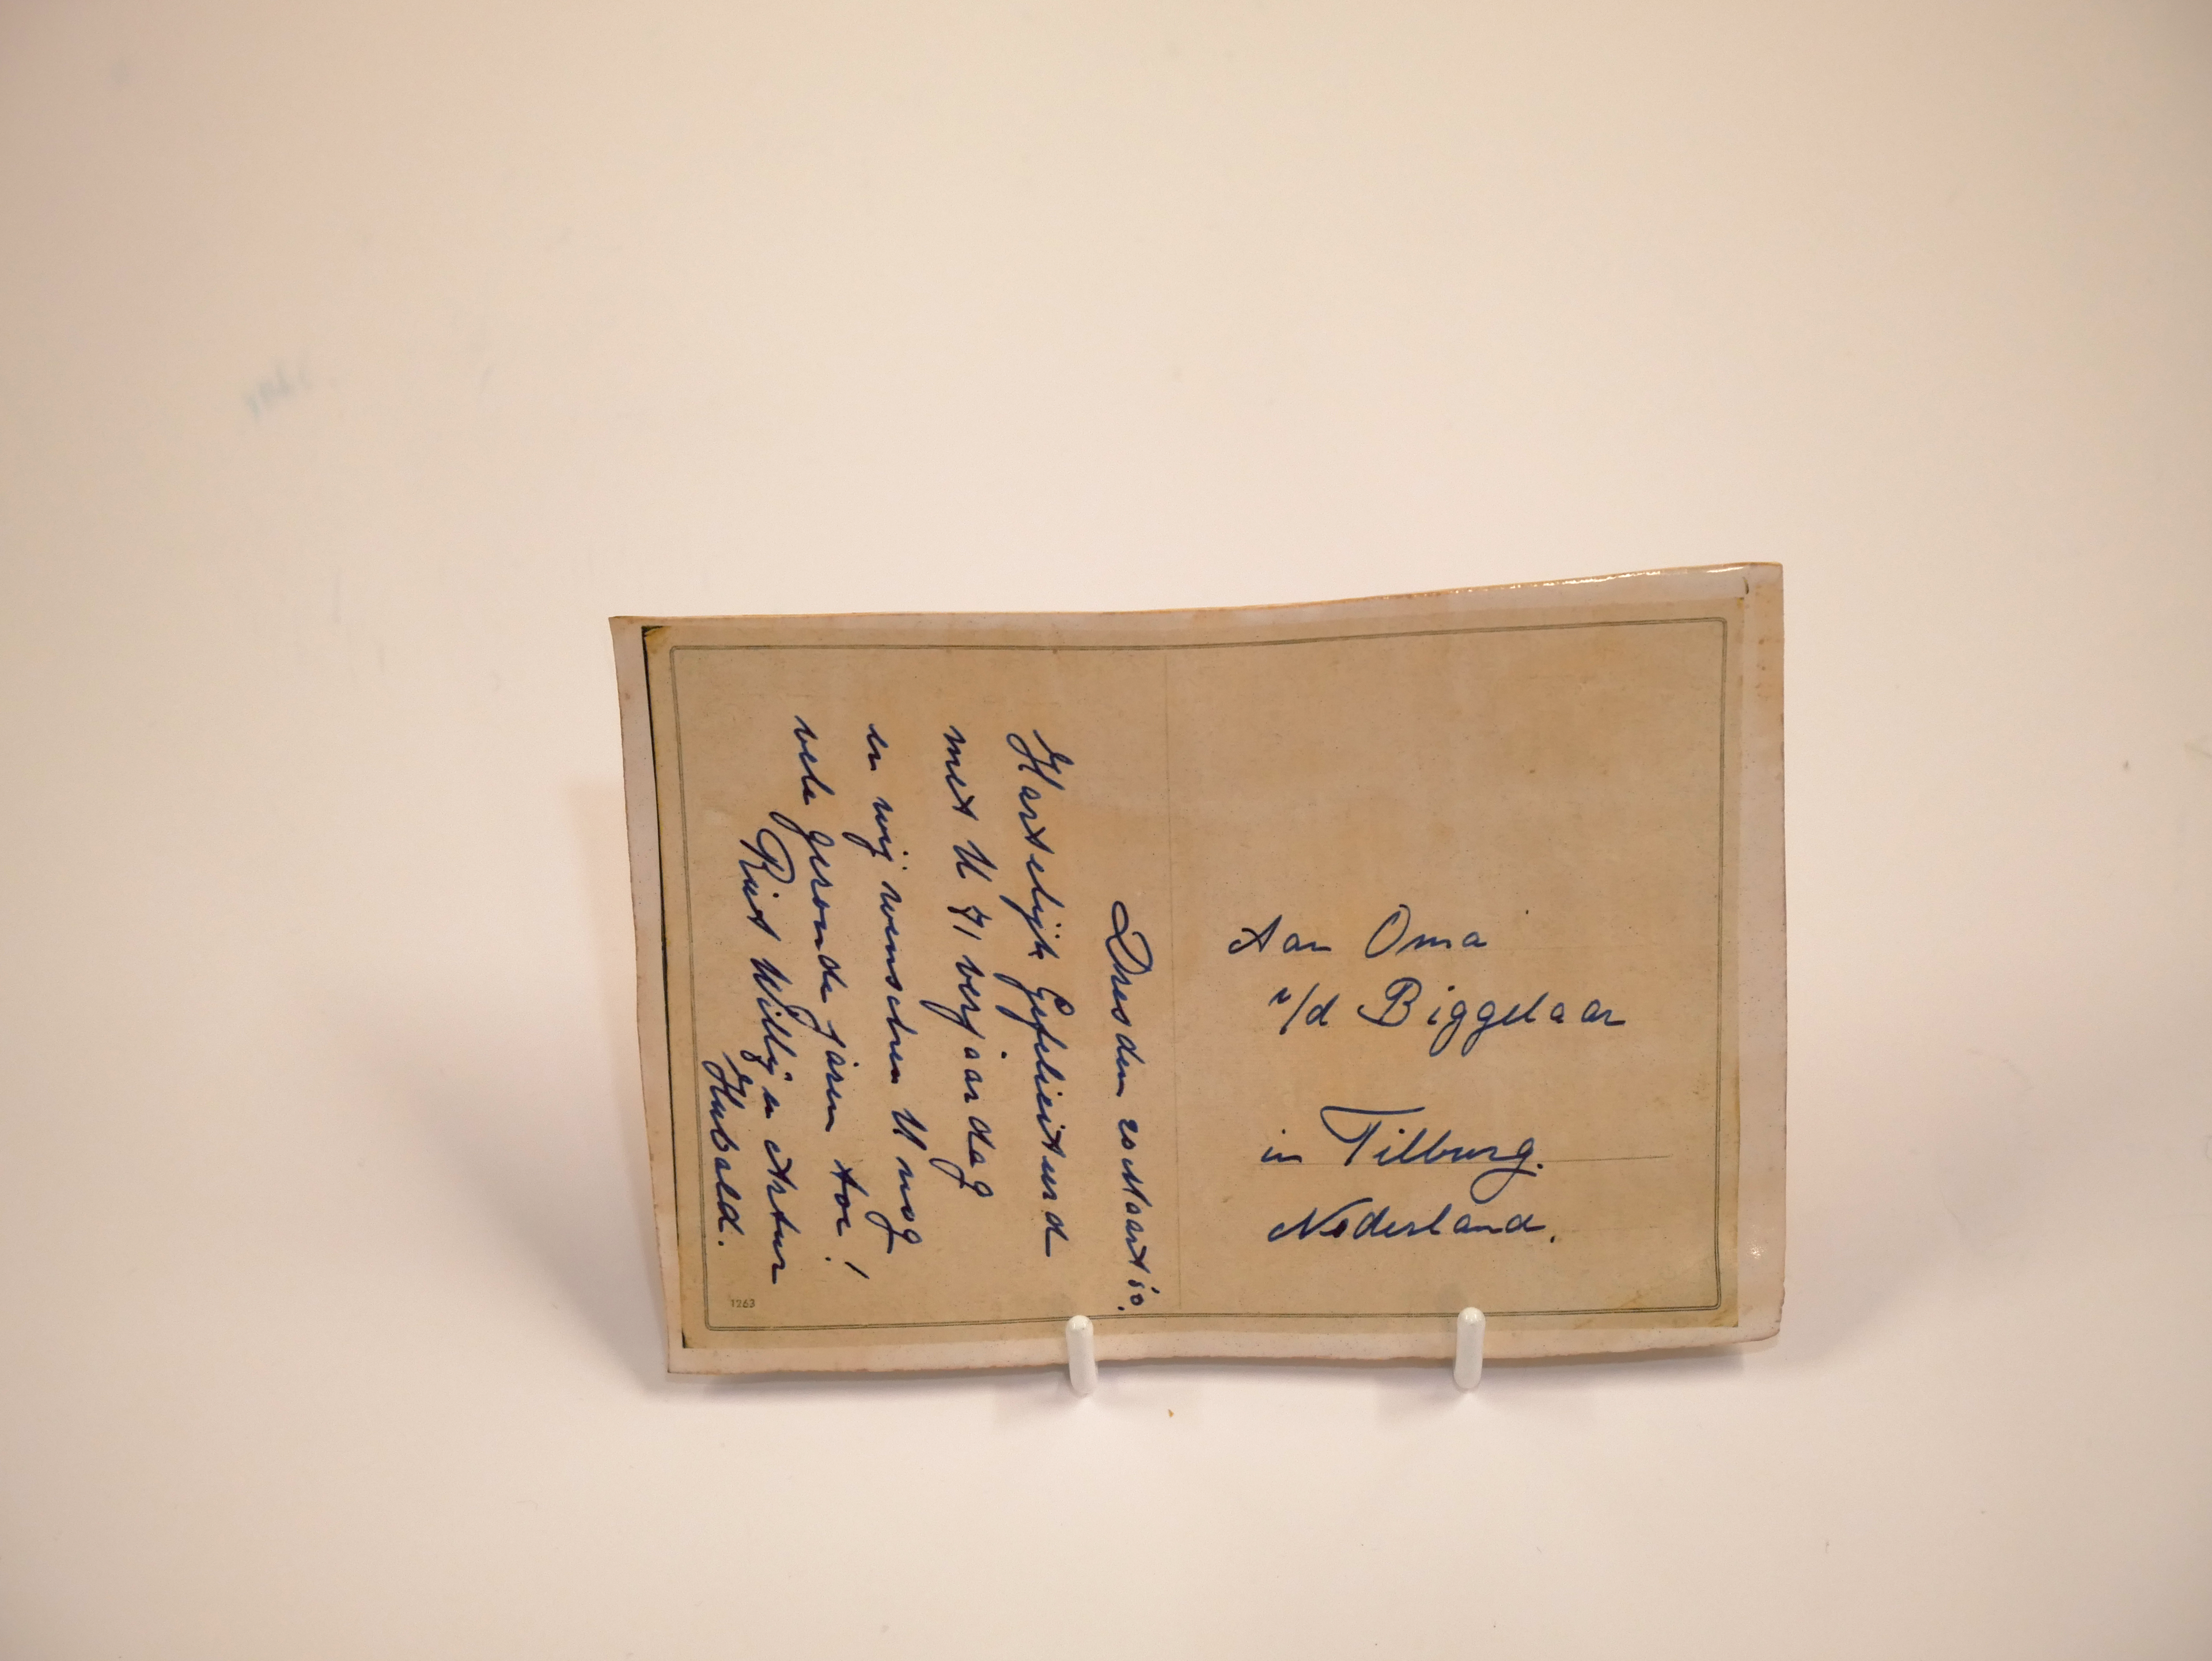 Dresden 20 Maart 50.
Hartelijk Gefeliciteerd
met U 71 verjaardag
en wij wenschen U nog
vele gesonde jaren toe!
Riet Willy en Artur
Hubald.
1263
Aan Oma
v/d Biggelaar
in Tilburg.
Nederland.